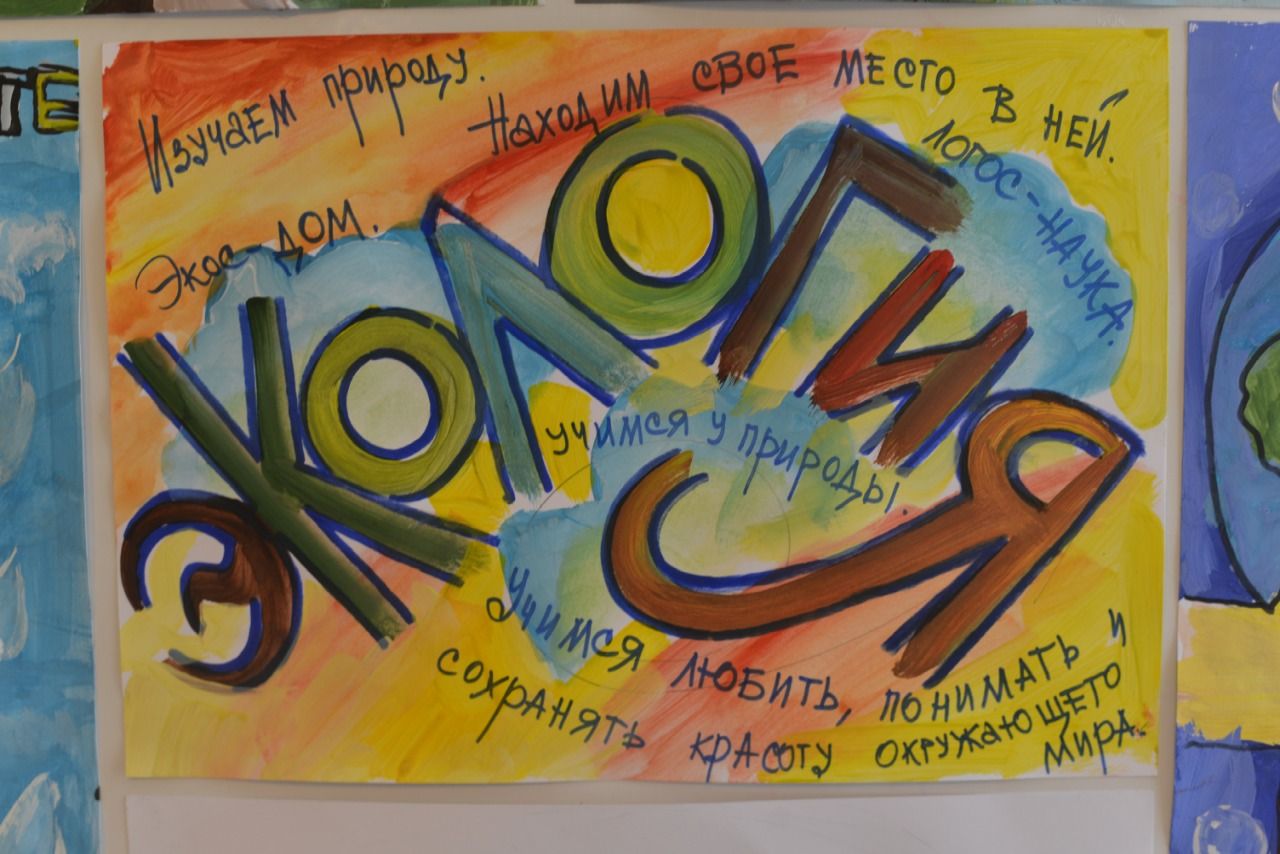 ТЕ
Изучаем природу.
Находим свое место в ней.
Экос-дом.
Логос-наука.
ЭКОЛОГИЯ
учимся у природы.
Учимся любить, понимать и
сохранять красоту окружающего
мира.